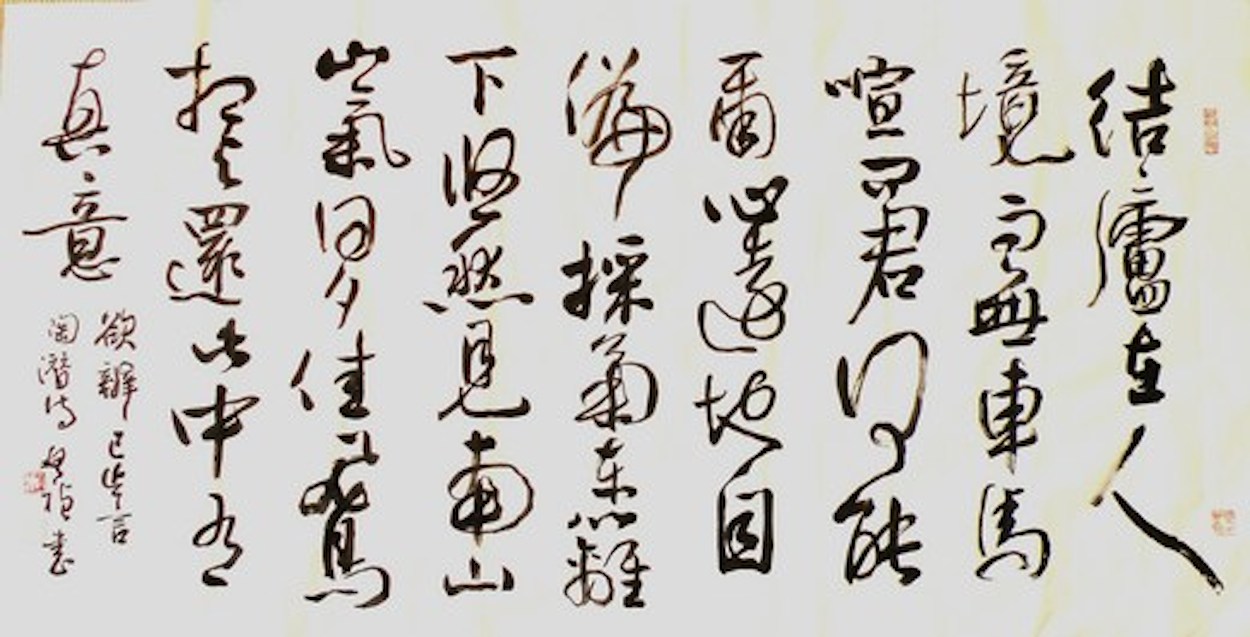 結廬在人
境而無車馬
喧問君何能
爾心遠地自
偏採菊東籬
下悠然見南山
山氣日夕佳飛鳥
相與還此中有
真意
欲辨已忘言
陶潛詩 書